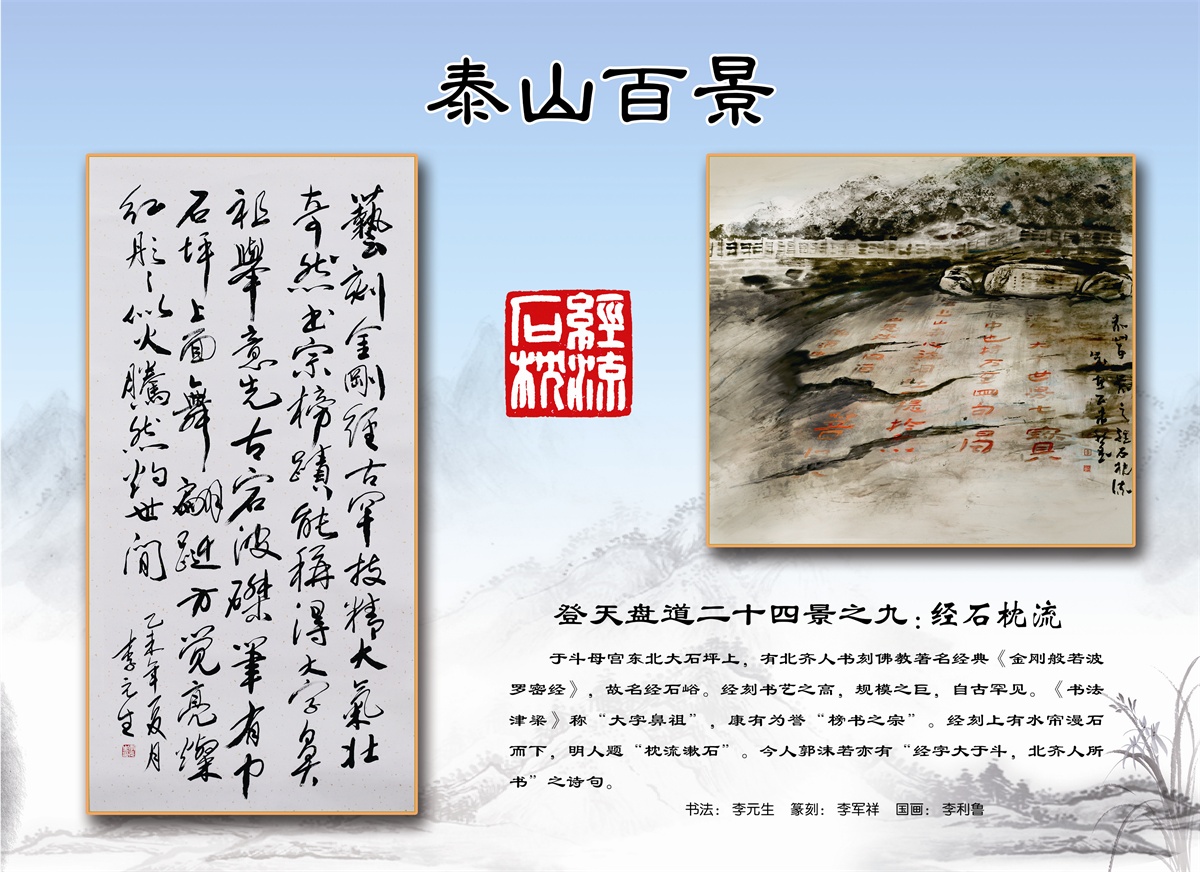 泰山百景
藝刻金剛經古罕技精大氣壯
奇然書宗榜蹟能稱得大字鼻
祖舉意先古宕波磔筆有力
石坪上面舞翩跹方覺亮燦
紅彤彡似火騰然灼世間
乙未年夏月
李元生
經
石
枕
流
登天盘道二十四景之九：经石枕流
于斗母宫东北大石坪上，有北齐人书刻佛教著名经典《金刚般若波
罗密经》，故名经石峪。经刻书艺之高，规模之巨，自古罕见。《书法
津梁》称“大字鼻祖”，康有为誉“榜书之宗”。经刻上有水帘漫石
而下，明人题“枕流漱石”。今人郭沫若亦有“经字大于斗，北齐人所
书”之诗句。
书法：李元生 篆刻：李军祥 国画：李利鲁